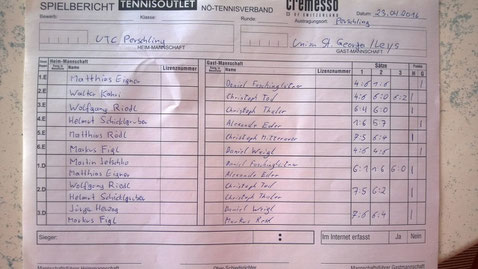 SPIELBERICHT TENNISOUTLET NÖ-TENNISVERBAND cremesso
OF SWITZERLAND
Datum: 23.04.2016
Bewerb: Klasse: Runde: Austragungsort: Perschling
UTC Perschling Union St. Georgen/Leys
HEIM-MANNSCHAFT GAST-MANNSCHAFT
Heim-Mannschaft Gast-Mannschaft Sätze
Name Lizenznummer Name Lizenznummer 1 2 3 H G
1.E Matthias Eigner Daniel 4:6 1:6
2.E Walter Christoph Tod 4:6 6:2
3.E Wolfgang Riedl Christoph 6:4 6:0
4.E Helmut Schicklgruber Alexander Eder 1:6 5:7
5.E Matthias Rödl Christoph 7:5 6:4
6.E Markus Figl Daniel Weigl 4:6
1.D Martin Daniel
Matthias Eigner Alexander Eder 6:1 1:6 6:0
2.D Wolfgang Riedl Christoph Tod
Helmut Schicklgruber Christoph 7:5 6:2
3.D Jürgen Daniel Weigl
Markus Figl Markus 6:4
Sieger: : Im Internet erfasst Ja Nein